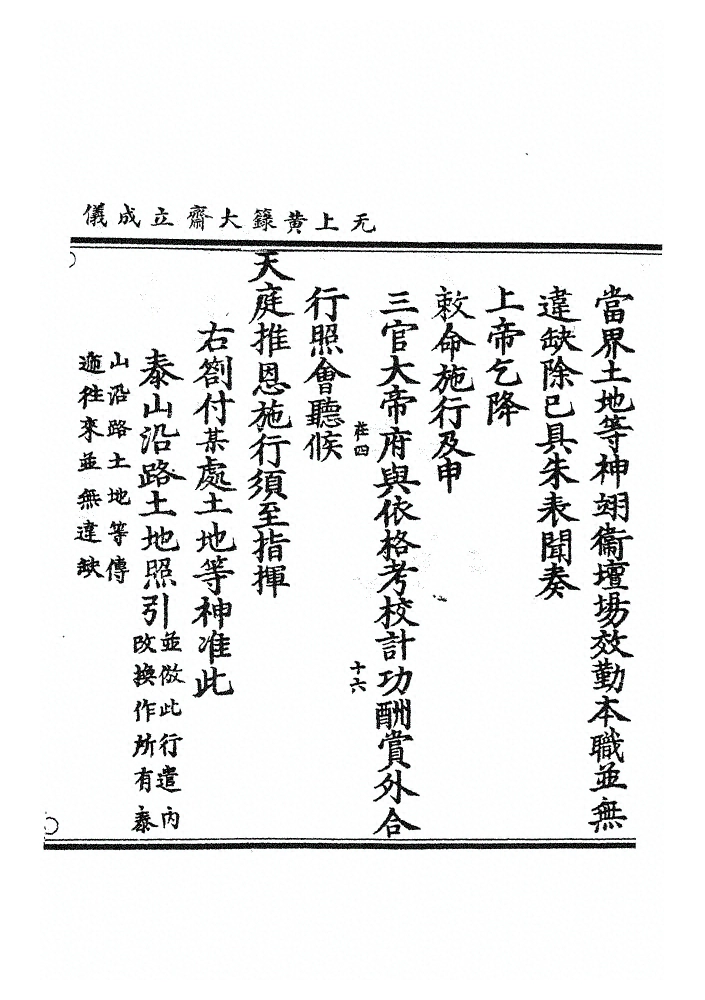 无上黃籙大齋立成儀
當界土地等神翊衞壇場效勤本職並無
違缺除已具朱表聞奏
上帝乞降
敕命施行及申
三官大帝府與依格考校計功酬賞外合
莊四
十六
行照會聽候
天庭推恩施行須至指揮
右劄付某處土地等神准此
泰山沿路土地照引
並倣此行遣內
改換作所有泰
山沿路土地等傳
遞往來並無違缺